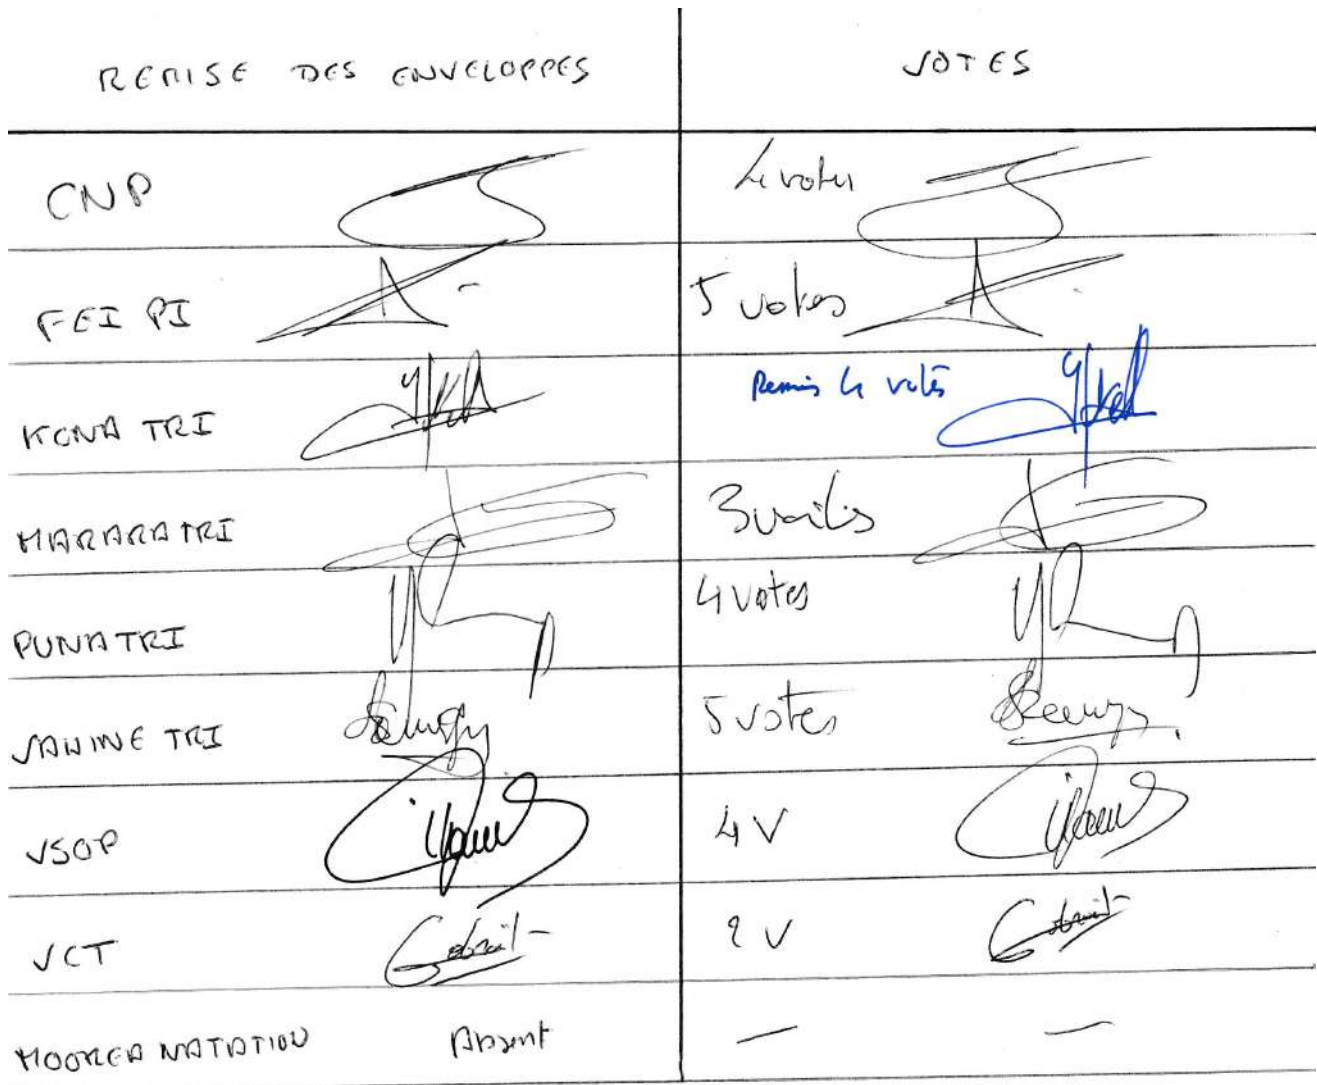 REMISE DES ENVELOPPES VOTES
CNP 4 votes
FEI PI 5 votes
KONA TRI Remis 4 votes
MARARA TRI 3 voites
PUNA TRI 4 votes
VAHINE TRI 5 votes
VSOP 4 V
VCT 2 V
MOOREA NATATION Absent — —